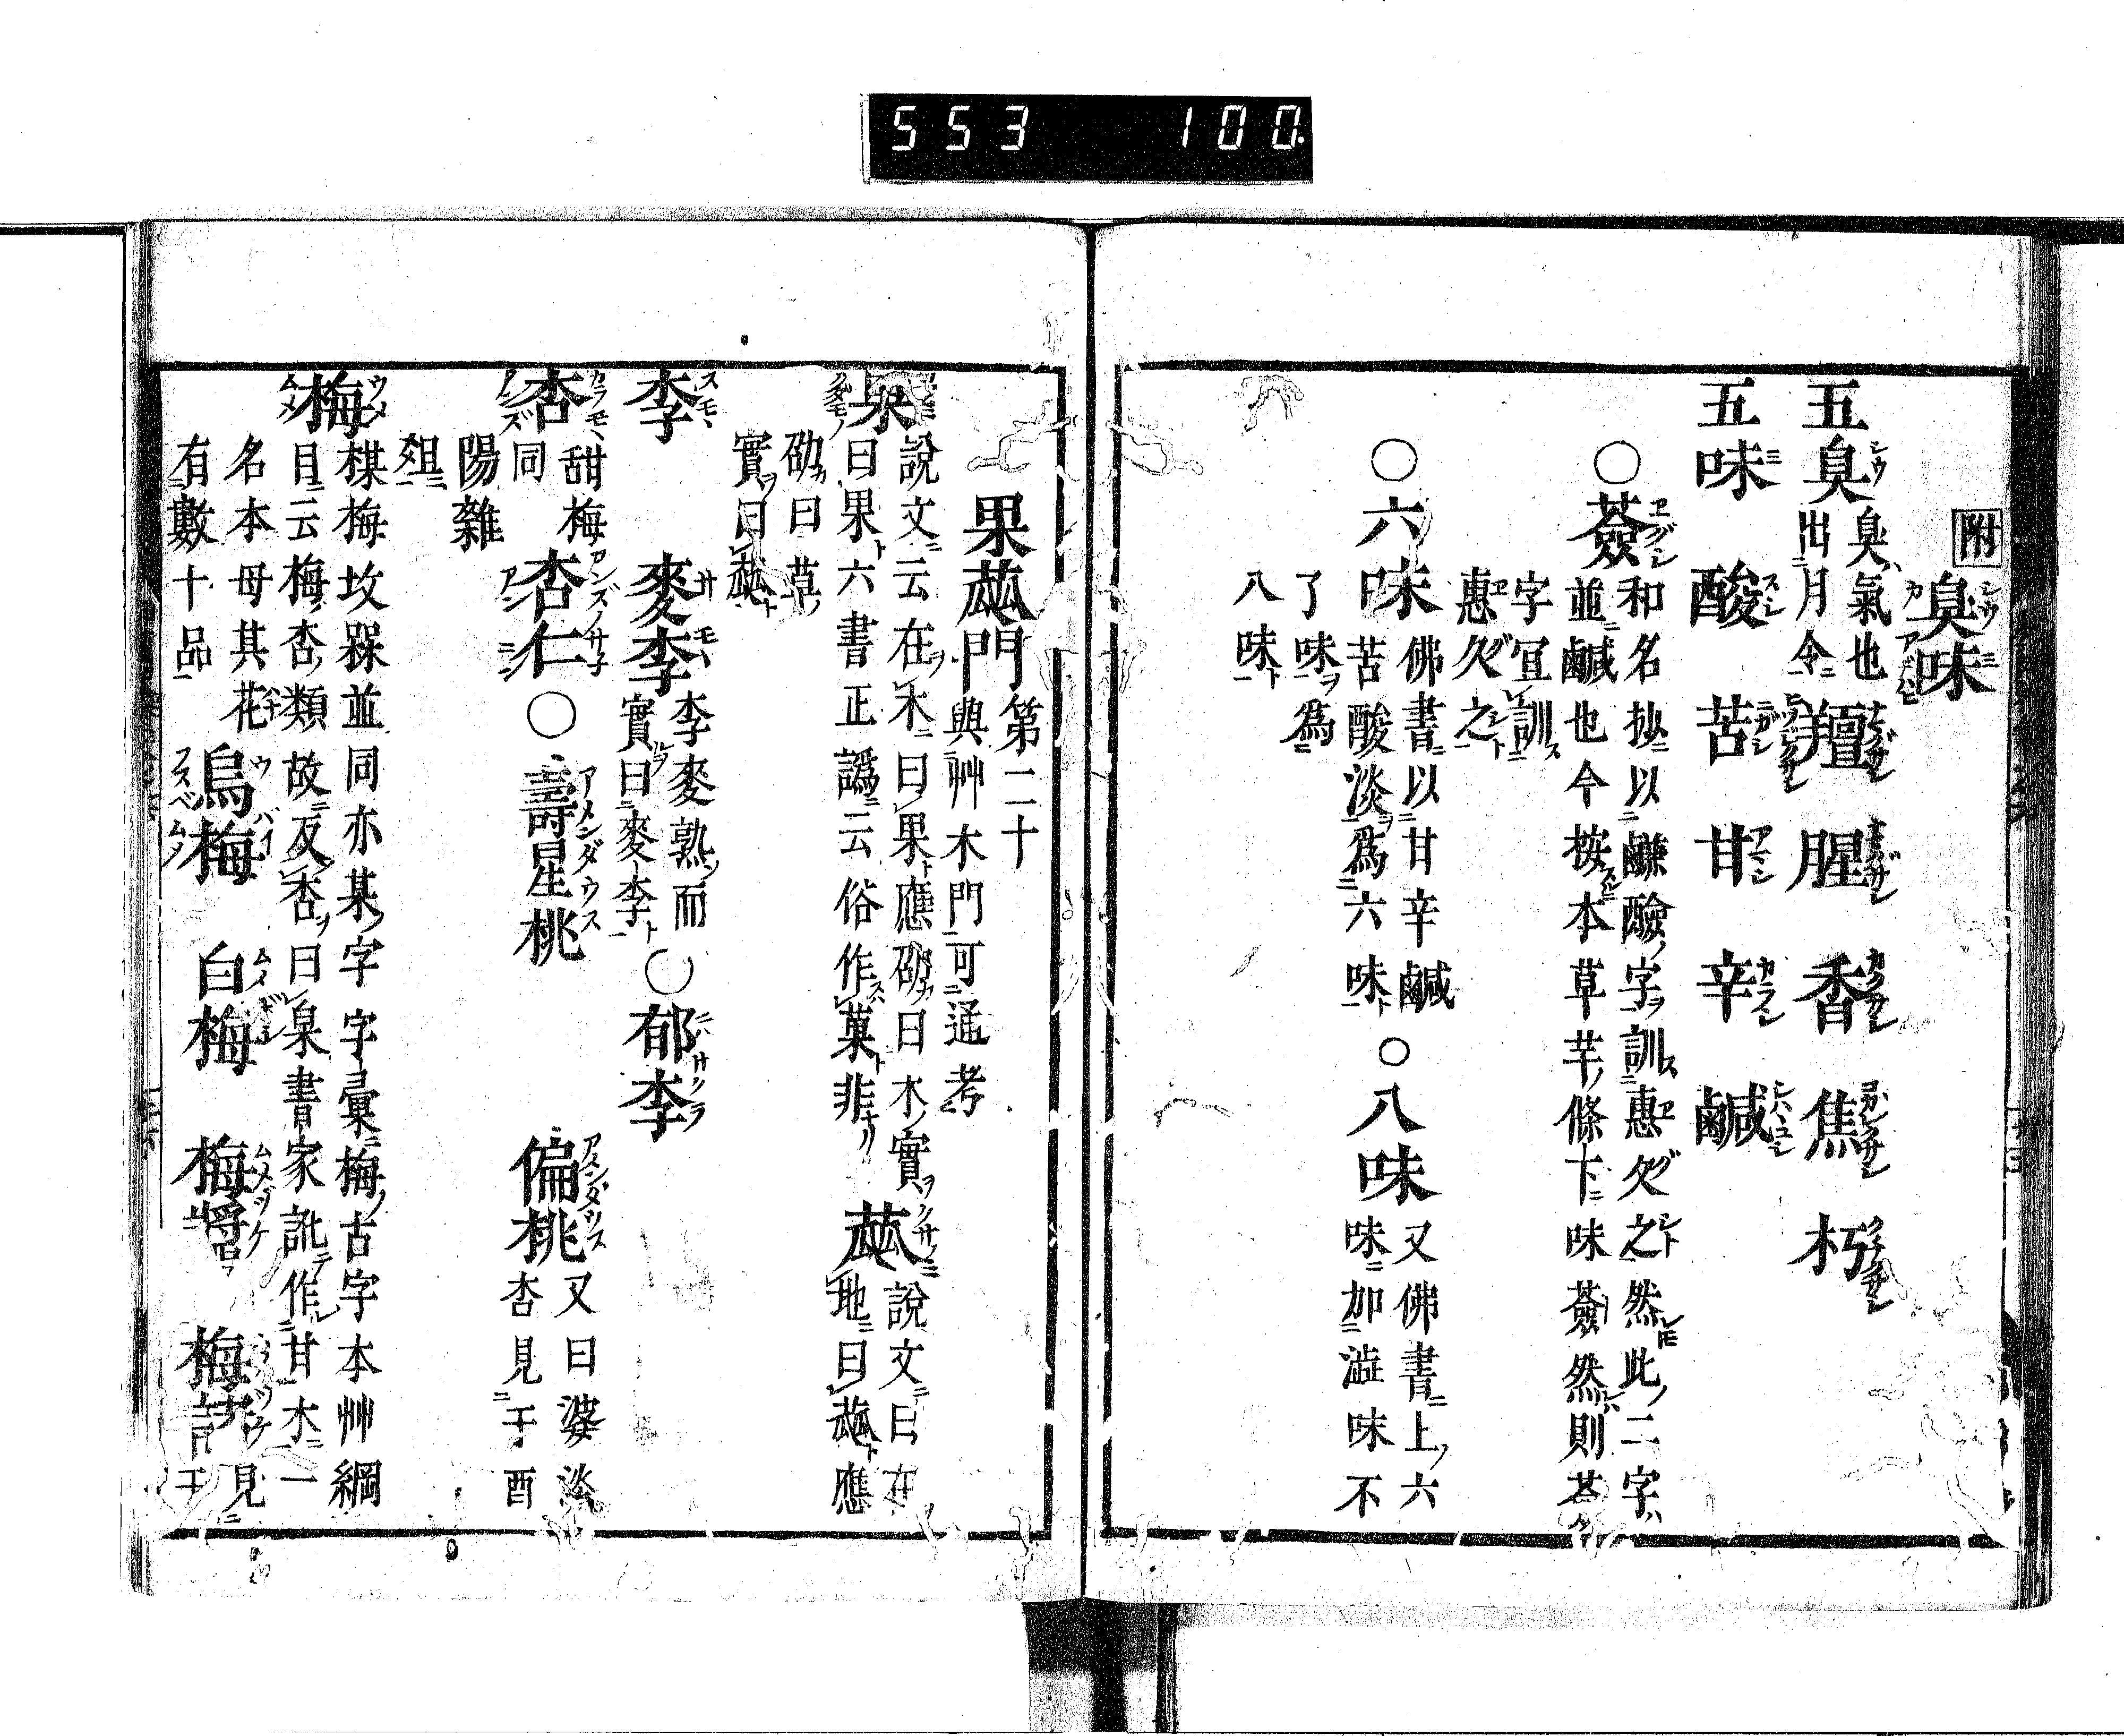 553 100.
附 臭味
五臭 臭氣也出月令 羶 腥 香 焦 朽
五味 酸 苦 甘 辛 鹹
○薟 和名抄以鹻醶字訓惠久之然此二字
並鹹也今按本草芋條下味薟然則薟
字宜訓
惠久之
○六味 佛書以甘辛鹹
苦酸淡爲六味
○八味 又佛書上六
味加澁味不
了味爲
八味
果蓏門第二十 與艸木門可通考
果 說文云在木曰果應劭曰木實
曰果六書正譌云俗作菓非
蓏 說文曰在
地曰蓏應
劭曰草
實曰蓏
李 麥李 李麥熟而
實曰麥李
○郁李
杏 甜梅
同
杏仁 ○壽星桃 偏桃 又曰婆淡
杏見于酉
陽雜
俎
梅 楳梅坆槑並同亦某字字彙梅古字本艸綱
目云梅杏類故反杏曰杲書家訛作甘木一
名本母其花
有數十品
烏梅 白梅 梅醬 見